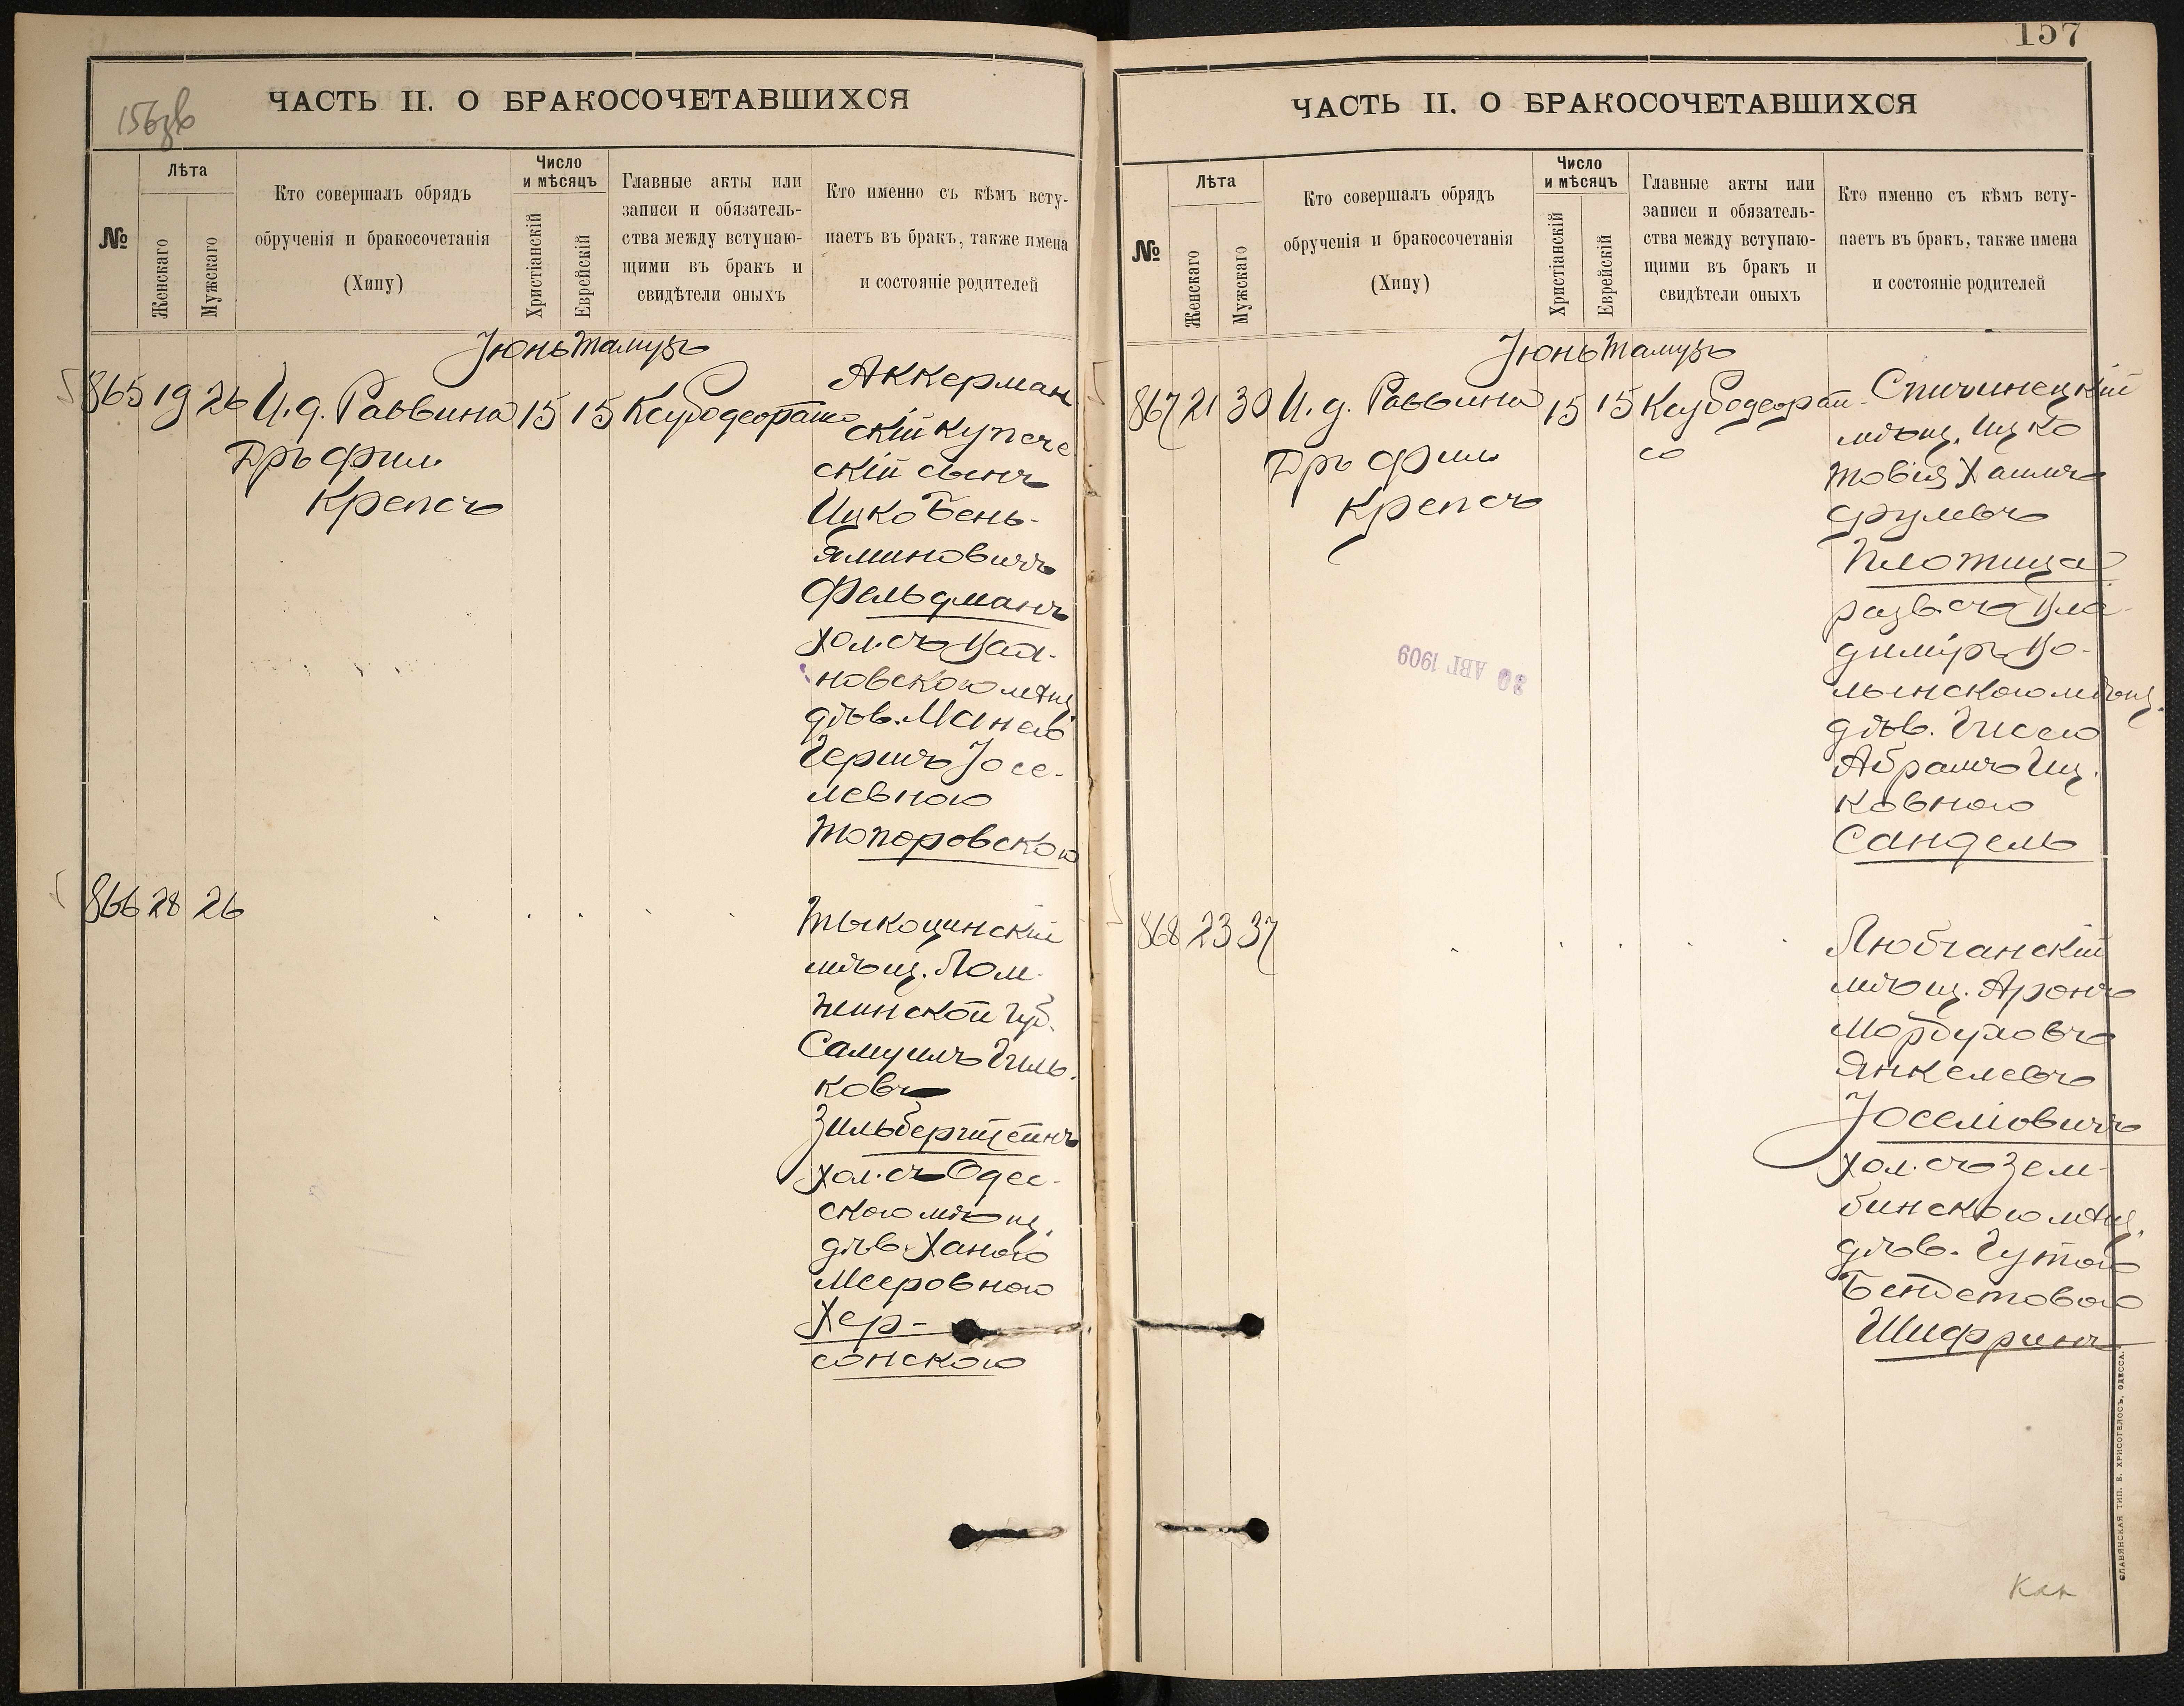 156зв
ЧАСТЬ II. О БРАКОСОЧЕТАВШИХСЯ
№
Лѣта
Женскаго
Мужскаго
Кто совершалъ обрядъ
обрученія и бракосочетанія
(Хипу)
Число
и мѣсяцъ
Христіанскій
Еврейскій
Главные акты или
записи и обязатель-
ства между вступаю-
щими въ бракъ и
свидѣтели оныхъ
Кто именно съ кѣмъ всту-
паетъ въ бракъ, также имена
и состояніе родителей
Іюнь Тамузъ
865 19 26 И.д. Раввина 15 15
Дръ Фил.
Крепсъ
Аккерман
скій купече
скій сынъ
Ицко Бень-
яминовичъ
Фельдманъ
хол. съ
новскою мѣщ.
дѣв.
Іосе-
левною
Топоровскою
866 28 26
Тыкоцинскій
мѣщ. Лом-
жинской губ.
Самуилъ Гиль-
ковъ
Зильберштейнъ
хол. съ Одес-
скою мѣщ.
дѣв. Ханою
Мееровною
Хер-
сонскою
157
ЧАСТЬ II. О БРАКОСОЧЕТАВШИХСЯ
№
Лѣта
Женскаго
Мужскаго
Кто совершалъ обрядъ
обрученія и бракосочетанія
(Хипу)
Число
и мѣсяцъ
Христіанскій
Еврейскій
Главные акты или
записи и обязатель-
ства между вступаю-
щими въ бракъ и
свидѣтели оныхъ
Кто именно съ кѣмъ всту-
паетъ въ бракъ, также имена
и состояніе родителей
Іюнь Тамузъ
867 21 30 И.д. Раввина 15 15
Дръ Фил.
Крепсъ
Спичинецкій
мѣщ. Ицко
Товія Хаимъ
Срулевъ
Плотица
разв. съ Вла-
димiръ Во-
лынскою мѣщ.
дѣв.
Абрамъ Иц-
ковною
Сандель
30 АВГ 1909
868 23 37
Любчанскій
мѣщ. Аронъ
Мордуховъ
Янкелевъ
Іоселіовичъ
хол. съ Зем-
бинскою мѣщ.
дѣв. Гутою
Бендетовою
Шифринъ
СЛАВЯНСКАЯ ТИП. Е. ХРИСОГЕЛОСЪ, ОДЕССА.